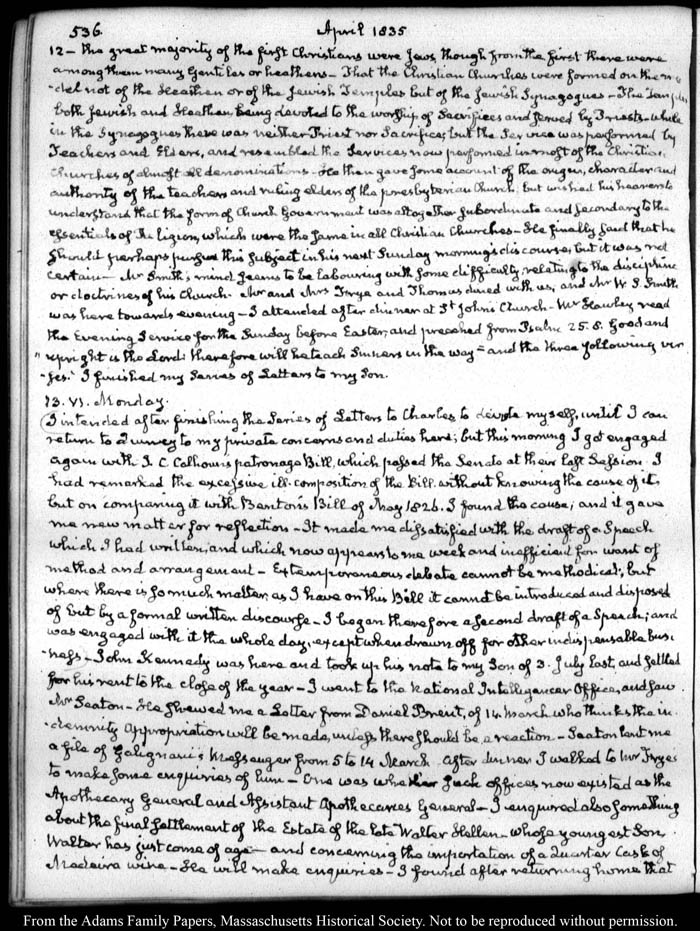 536.
April 1835
12 — the great majority of the first Christians were Jews, though from the first there were
among them many Gentiles or heathens — That the Christian Churches were formed on the mo
-del not of the Heathen or of the Jewish Temples but of the Jewish Synagogues — The Temples
both Jewish and Heathen being devoted to the worship of Sacrifices and served by Priests — while
in the Synagogues there was neither Priest nor Sacrifice, but the Service was performed by
Teachers and Elders, and resembled the Services now performed in most of the Christian
Churches of almost all denominations — He then gave some account of the origin, character and
authority of the teachers and ruling elders of the presbyterian Church; but wished his hearers to
understand that the form of Church Government was altogether subordinate and secondary to the
essentials of Religion, which were the same in all Christian Churches — He finally said that he
should perhaps pursue this subject in his next Sunday morning's discourse, but it was not
certain — Mr Smith's mind seems to be labouring with some difficulty relating to the discipline
or doctrines of his Church. Mr and Mrs Frye and Thomas dined with us, and Mr W. S. Smith
was here towards evening — I attended after dinner at St Johns Church — Mr Hawley read
the Evening Service for the Sunday before Easter, and preached from Psalm 25. 8. Good and
"upright is the Lord: therefore will he teach Sinners in the way" and the three following ver
-ses. I finished my Series of Letters to my Son.
13. VI. Monday.
I intended after finishing the Series of Letters to Charles to devote myself, until I can
return to Quincy to my private concerns and duties here; but this morning I got engaged
again with J. C. Calhoun's patronage Bill, which passed the Senate at their last Session. I
had remarked the excessive ill-composition of the Bill, without knowing the cause of it,
but on comparing it with Benton's Bill of May 1826. I found the cause; and it gave
me new matter for reflection — It made me dissatisfied with the draft of a Speech
which I had written, and which now appears to me weak and inefficient for want of
method and arrangement — Extemporaneous debate cannot be methodical; but
where there is so much matter, as I have on this Bill it cannot be introduced and disposed
of but by a formal written discourse — I began therefore a second draft of a Speech; and
was engaged with it the whole day, except when drawn off for other indispensable busi
-ness — John Kennedy was here and took up his note to my Son of 3. July last, and settled
for his rent to the close of the year — I went to the National Intelligencer Office, and saw
Mr Seaton — He shewed me a Letter from Daniel Brent, of 14. March who thinks the in
-demnity Appropriation will be made, unless there should be a reaction — Seaton lent me
a file of Galignani's Messenger from 5 to 14 March. After dinner I walked to Mr Frye's
to make some enquiries of him — One was whether such offices now existed as the
Apothecary General and Assistant Apothecaries General — I enquired also something
about the final settlement of the Estate of the late Walter Hellen, whose youngest Son
Walter has just come of age — and concerning the importation of a Quarter Cask of
Madeira wine — He will make enquiries — I found after returning home that
From the Adams Family Papers, Massachusetts Historical Society. Not to be reproduced without permission.